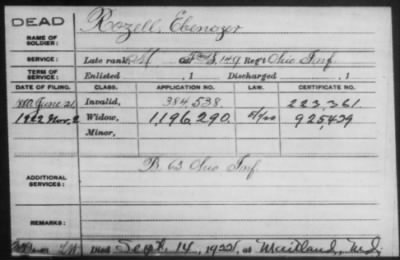 DEAD
NAME OF SOLDIER: Rozell, Ebenezer
SERVICE: Late rank, Co. B, 149 Reg't Ohio Inf.
TERM OF SERVICE: Enlisted , 1 Discharged , 1
DATE OF FILING. CLASS. APPLICATION NO. LAW. CERTIFICATE NO.
June 21 Invalid, 384,538 223,361
1922 Nov. 2 Widow, 1,196,290 925,429
Minor,
ADDITIONAL SERVICES: B. 63 Ohio Inf.
REMARKS:
Died Sept. 14, 1922, at Maitland, Mo.